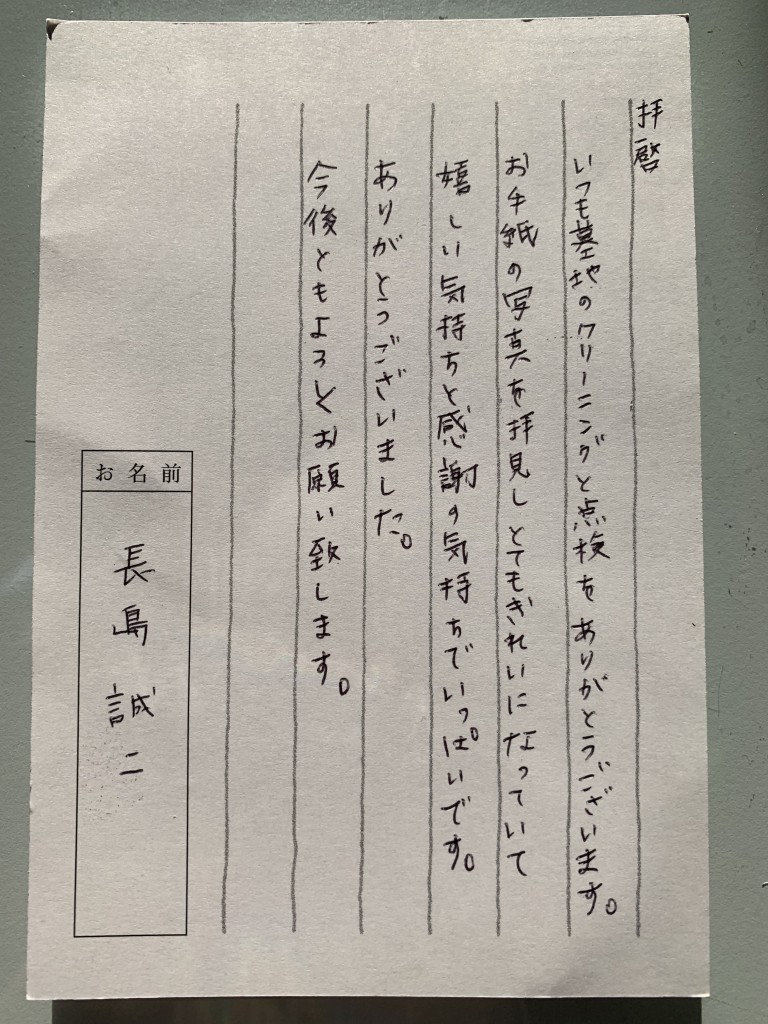 拝啓
いつも墓地のクリーニングと点検をありがとうございます。
お手紙の写真を拝見しとてもきれいになっていて
嬉しい気持ちと感謝の気持ちでいっぱいです。
ありがとうございました。
今後ともよろしくお願い致します。
お名前
長島誠二